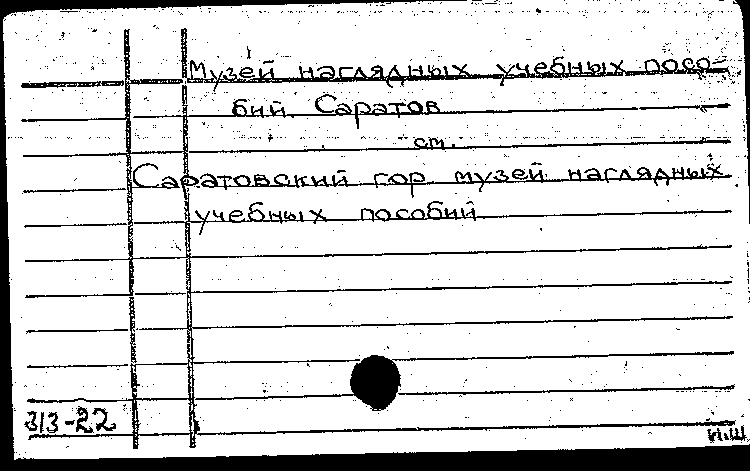 Музей наглядных учебных посо-
бий. Саратов
см.
Саратовский гор. музей наглядных
учебных пособий
313-22
И.Ш